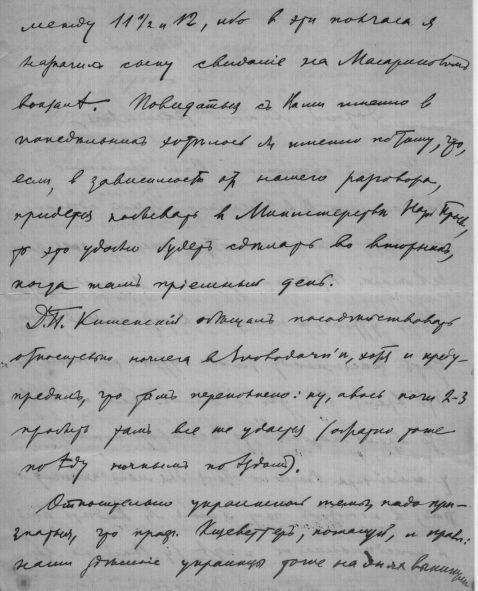 между 11 1/2 и 12, ибо в эти полчаса я
назначил сыну свидание на Масариковом
вокзале. Повидаться съ Вами именно в
понедельникъ хотелось бы именно потому, что,
если, в зависимости от нашего разговора,
придется побывать в Министерстве Нар. Просв.,
то это удобно будет сделать во вторникъ,
когда тамъ приемный день.
Д.И. обещалъ посодействовать
относительно ночлега в, хотя и преду-
предилъ, что тамъ переполнено: ну, авось ночи 2-3
пробыть тамъ все же удастся (обратно тоже
поеду ночнымъ поездом).
Относительно украинской темы, надо при-
знаться, что проф. Кизеветтеръ, пожалуй, и правъ:
наши здешние украинцы тоже на дняхъ выкинули